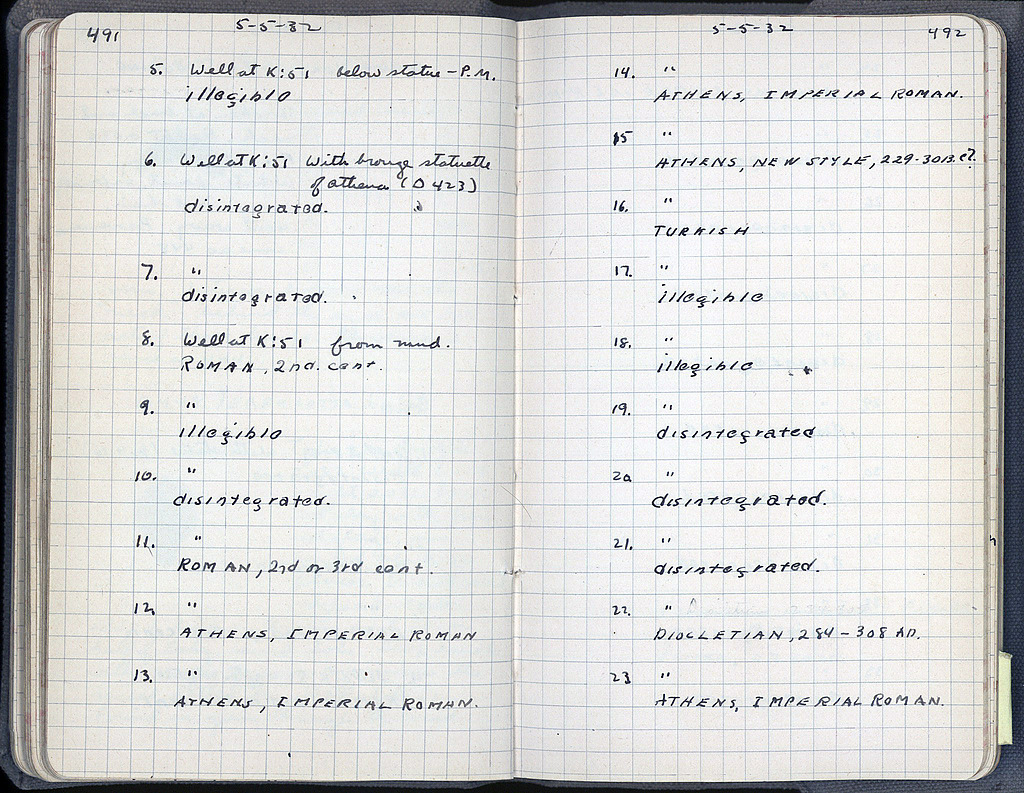 491
5-5-32
5. Well at K:51 below statue - P.M.
illegible
6. Well at K:51 With bronze statuette
of athena (Δ 423)
disintegrated.
7. "
disintegrated.
8. Well at K:51 from mud.
ROMAN, 2nd. cent.
9. "
illegible
10. "
disintegrated.
11. "
ROMAN, 2nd or 3rd cent.
12. "
ATHENS, IMPERIAL ROMAN
13. "
ATHENS, IMPERIAL ROMAN.
5-5-32
492
14. "
ATHENS, IMPERIAL ROMAN.
15 "
ATHENS, NEW STYLE, 229-30 B.C?
16. "
TURKISH
17. "
illegible
18. "
illegible
19. "
disintegrated
20 "
disintegrated.
21. "
disintegrated.
22. "
DIOCLETIAN, 284-308 AD.
23 "
ATHENS, IMPERIAL ROMAN.